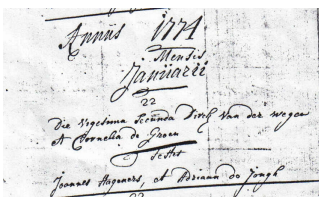 Annus 1774
Mensis
Januarii
22
Die Vigesima Secunda Dirck Van der wegen
et Cornelia de Groen
Testes
Joannes Hageners, et Adriana de Jongh
22